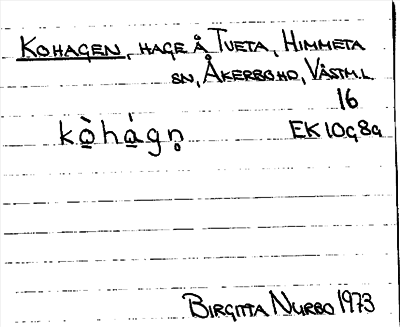 KOHAGEN, HAGE Å TUETA, HIMMETA
SN, ÅKERBO HD, VÄSTM.L
16
kò̱há̱gn̥ EK10g8a
BIRGITTA NURBO 1973